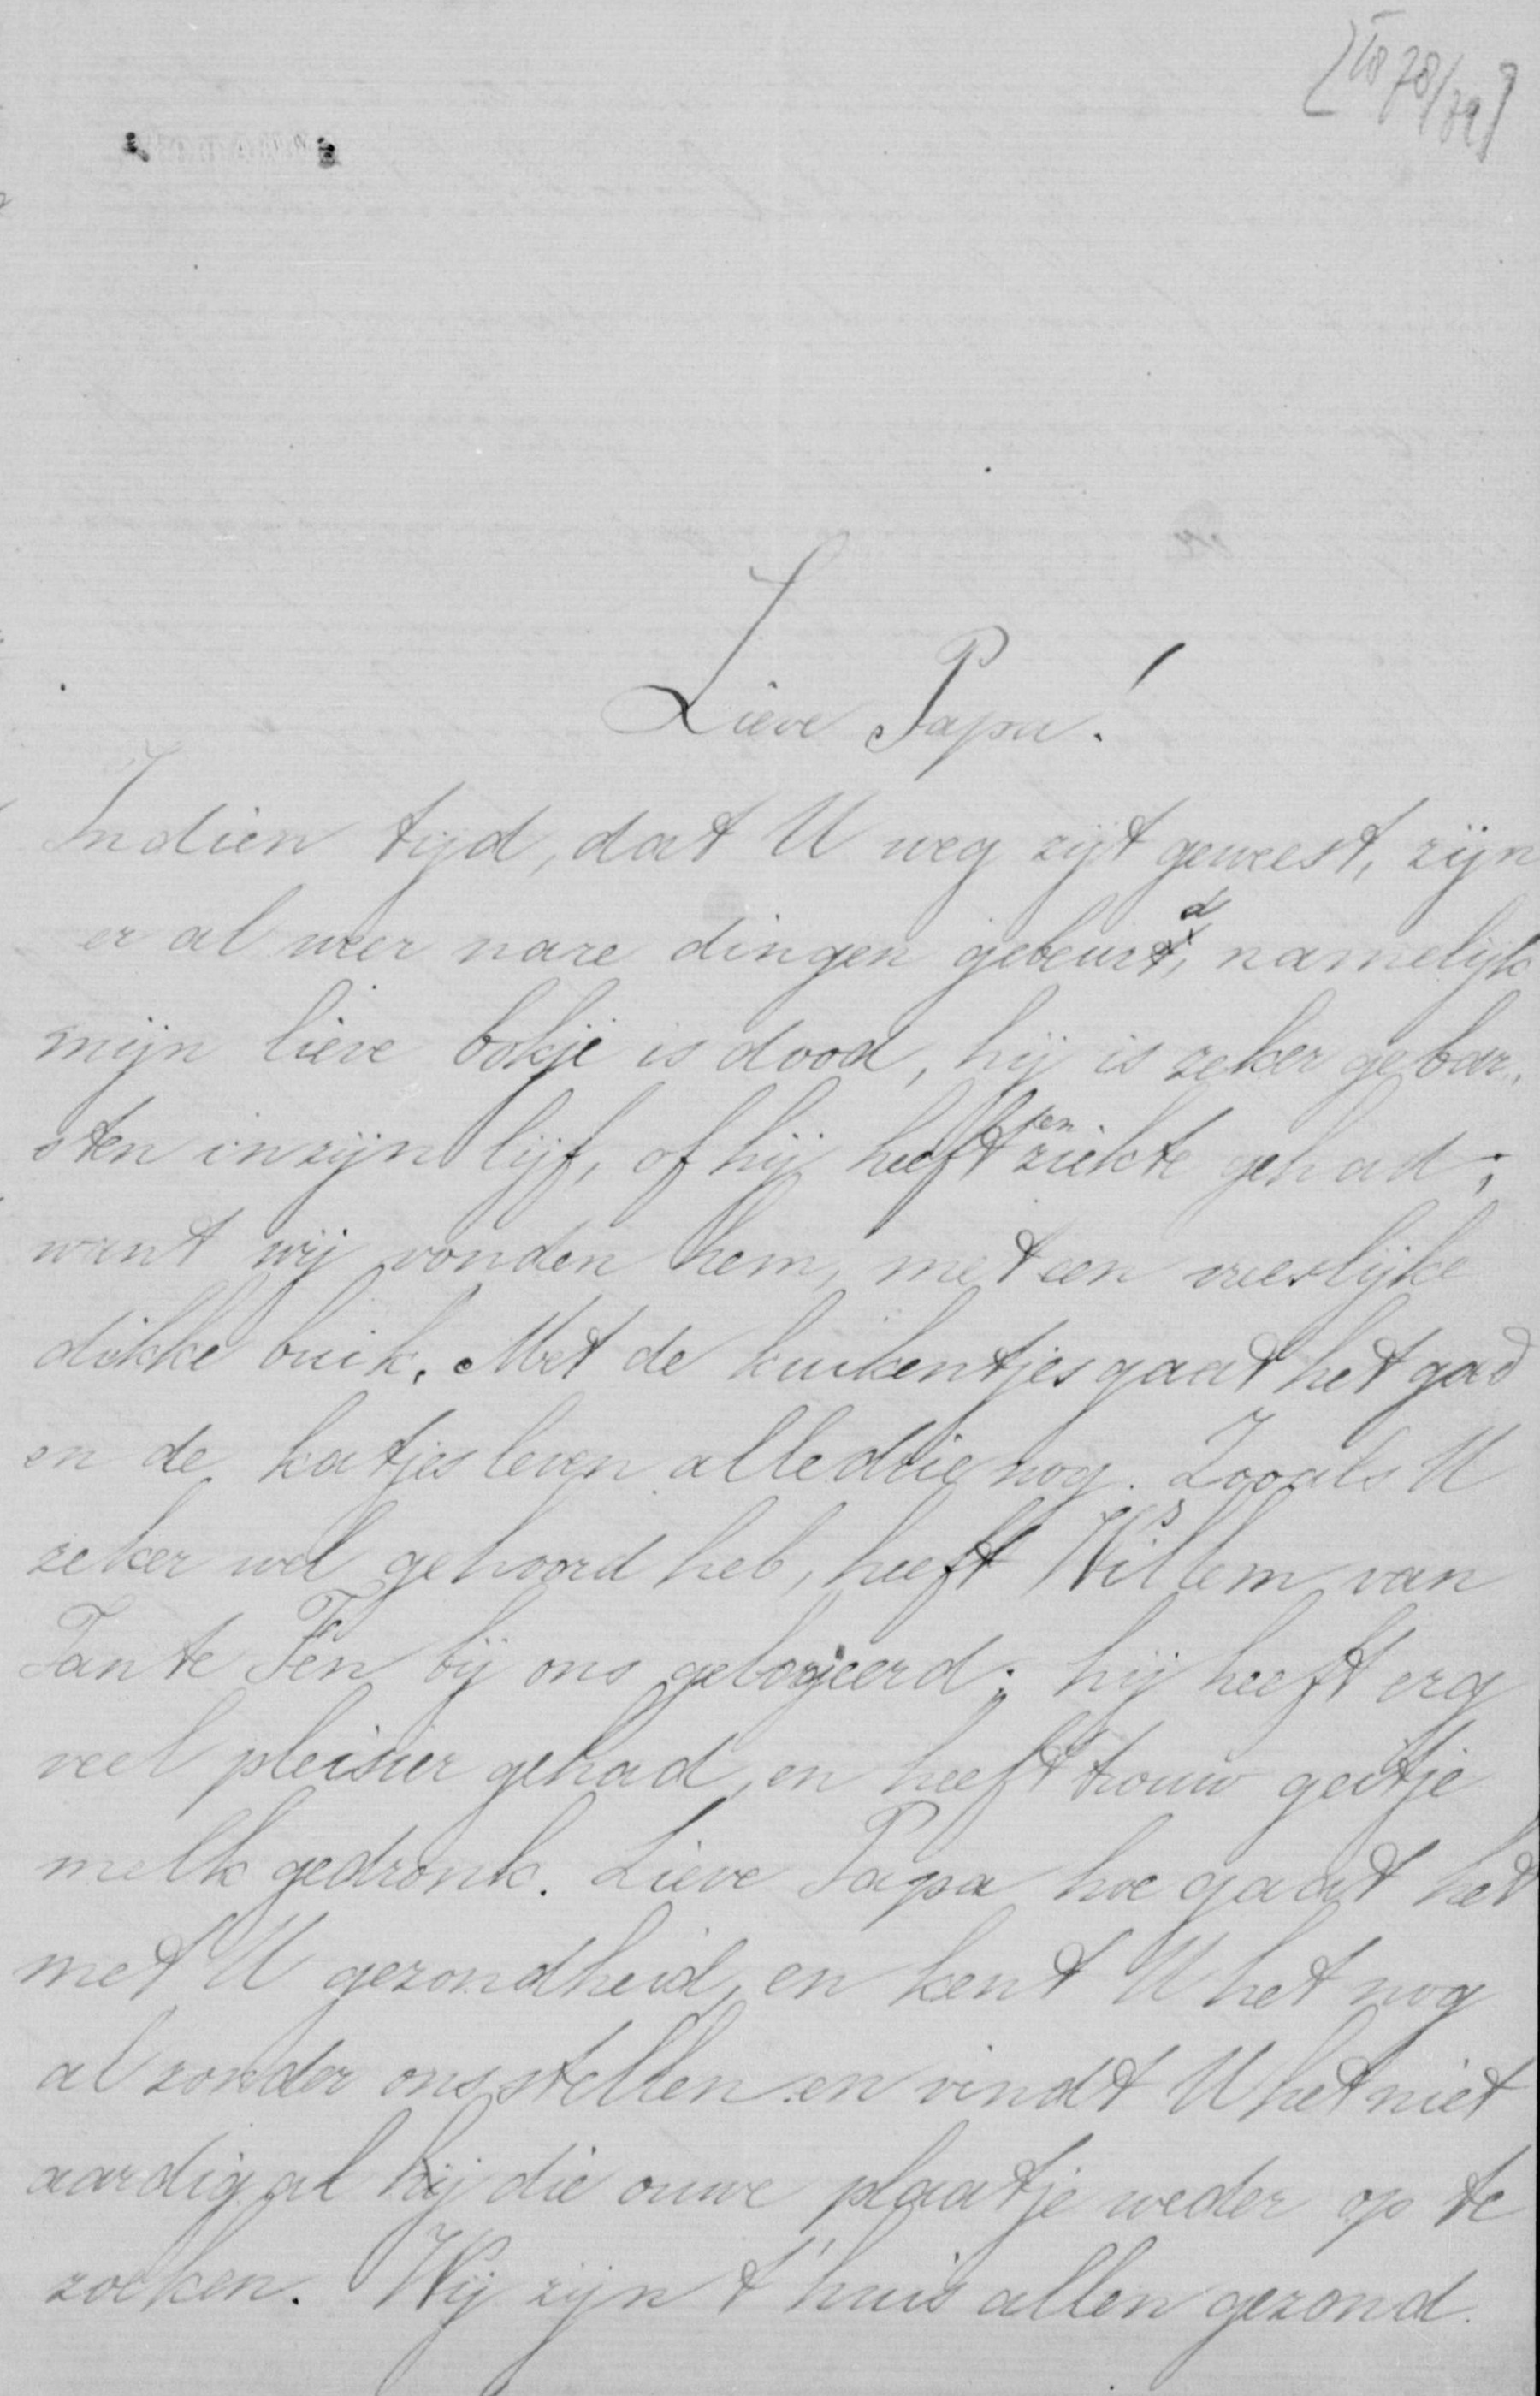 78/79
Lieve Papa!
Indien tijd, dat U weg zijt geweest, zijn
er al weer nare dingen gebeurd, namelijk
mijn lieve bokje is dood, hij is zeker gebar,
sten in zijn lijf, of hij heeft een ziekte gehad;
want wij vonden hem, met een vreeslijke
dikke buik. Met de kuikentjes gaat het goed
en de katjes leven alledrie nog. Zooals U
zeker wel gehoord heb, heeft Willem van
Tante Fen bij ons gelogeerd; hij heeft erg
veel pleisier gehad, en heeft trouw geitje
melk gedronk. Lieve Papa hoe gaat het
met U gezondheid, en kent U het nog
al zonder ons stellen en vindt U het niet
aardig al die ouwe plaatje weder op te
zoeken. Wij zijn t'huis allen gezond.